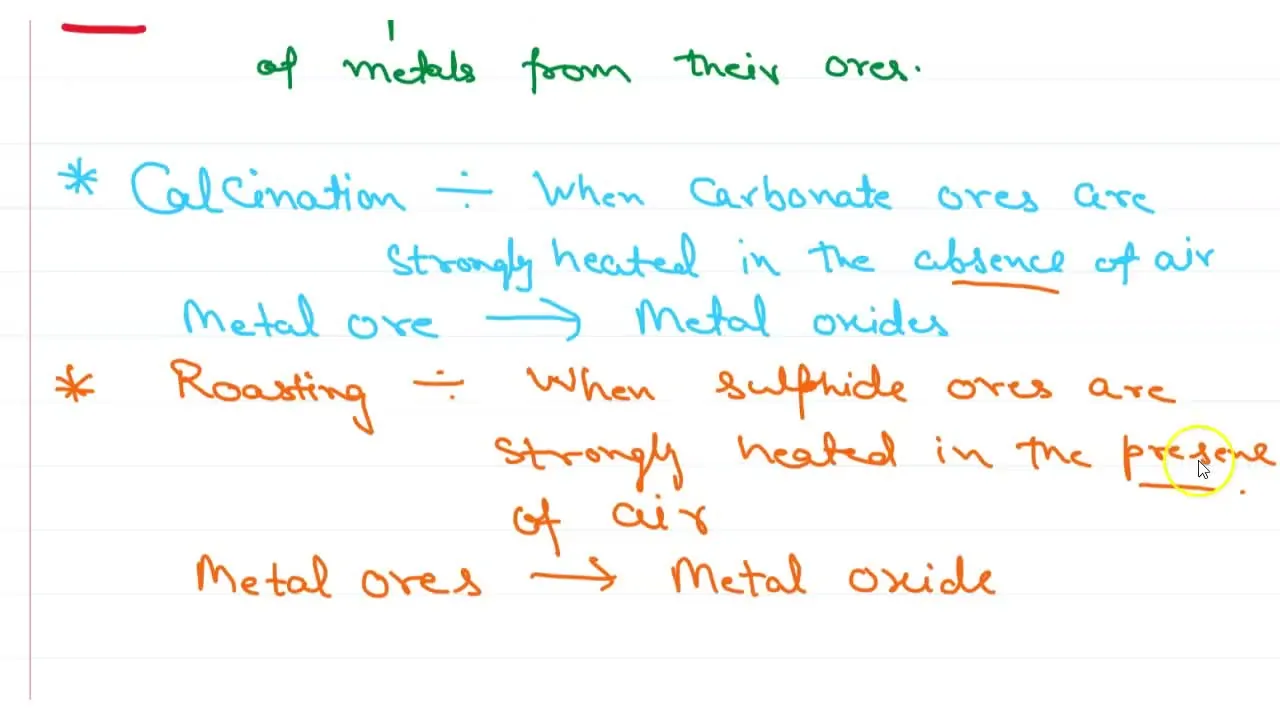 of metals from their ores.
* Calcination ÷ When carbonate ores are
strongly heated in the absence of air
Metal ore → Metal oxides
* Roasting ÷ When sulphide ores are
strongly heated in the presene
of air
Metal ores → Metal oxide